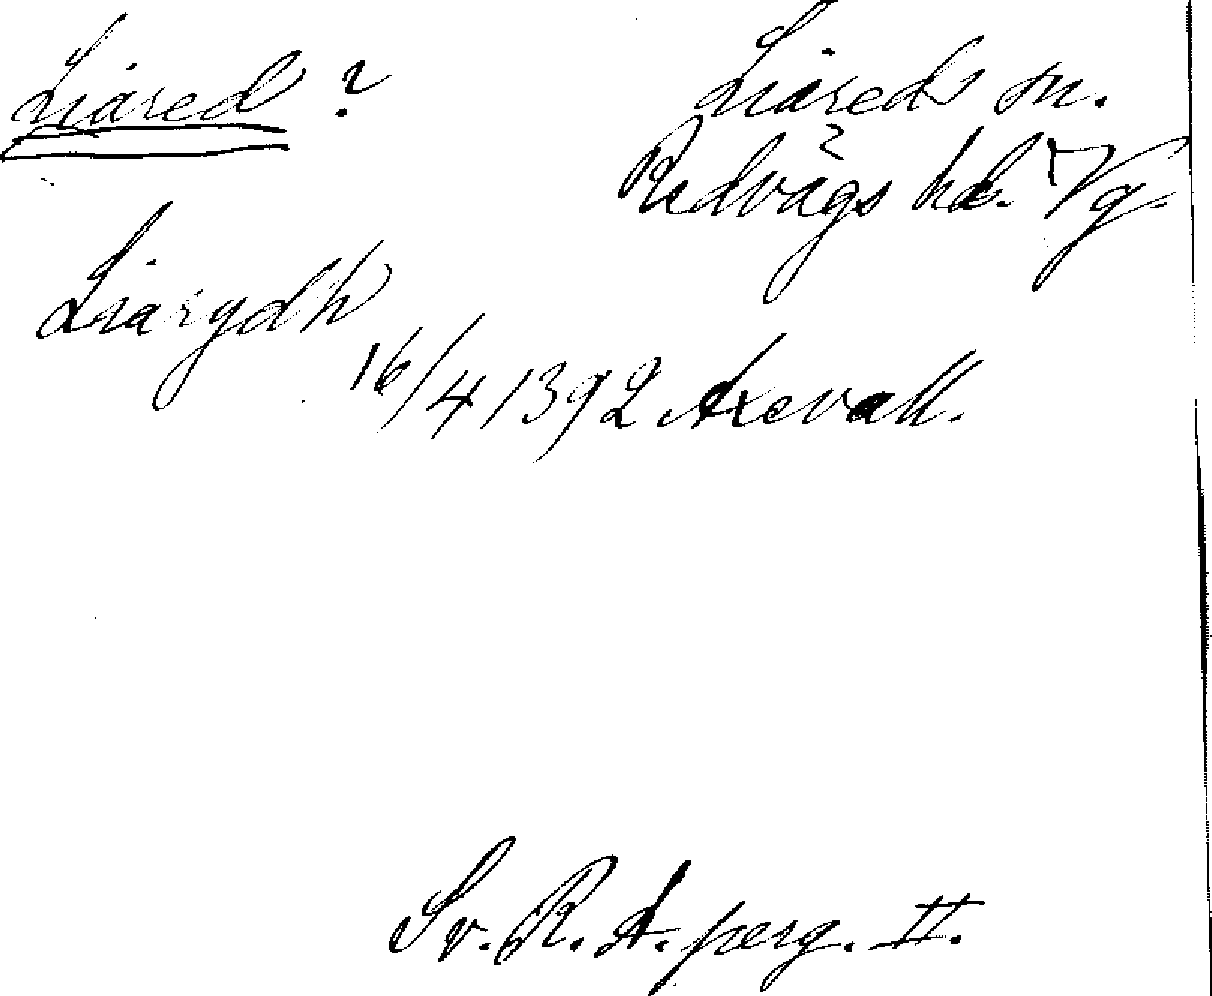 Liared ?
Liareds sn.
?
Redvägs hd. Vg.
Liarydh
16/4 1392 Axevall.
Sv. R. A. perg. II.